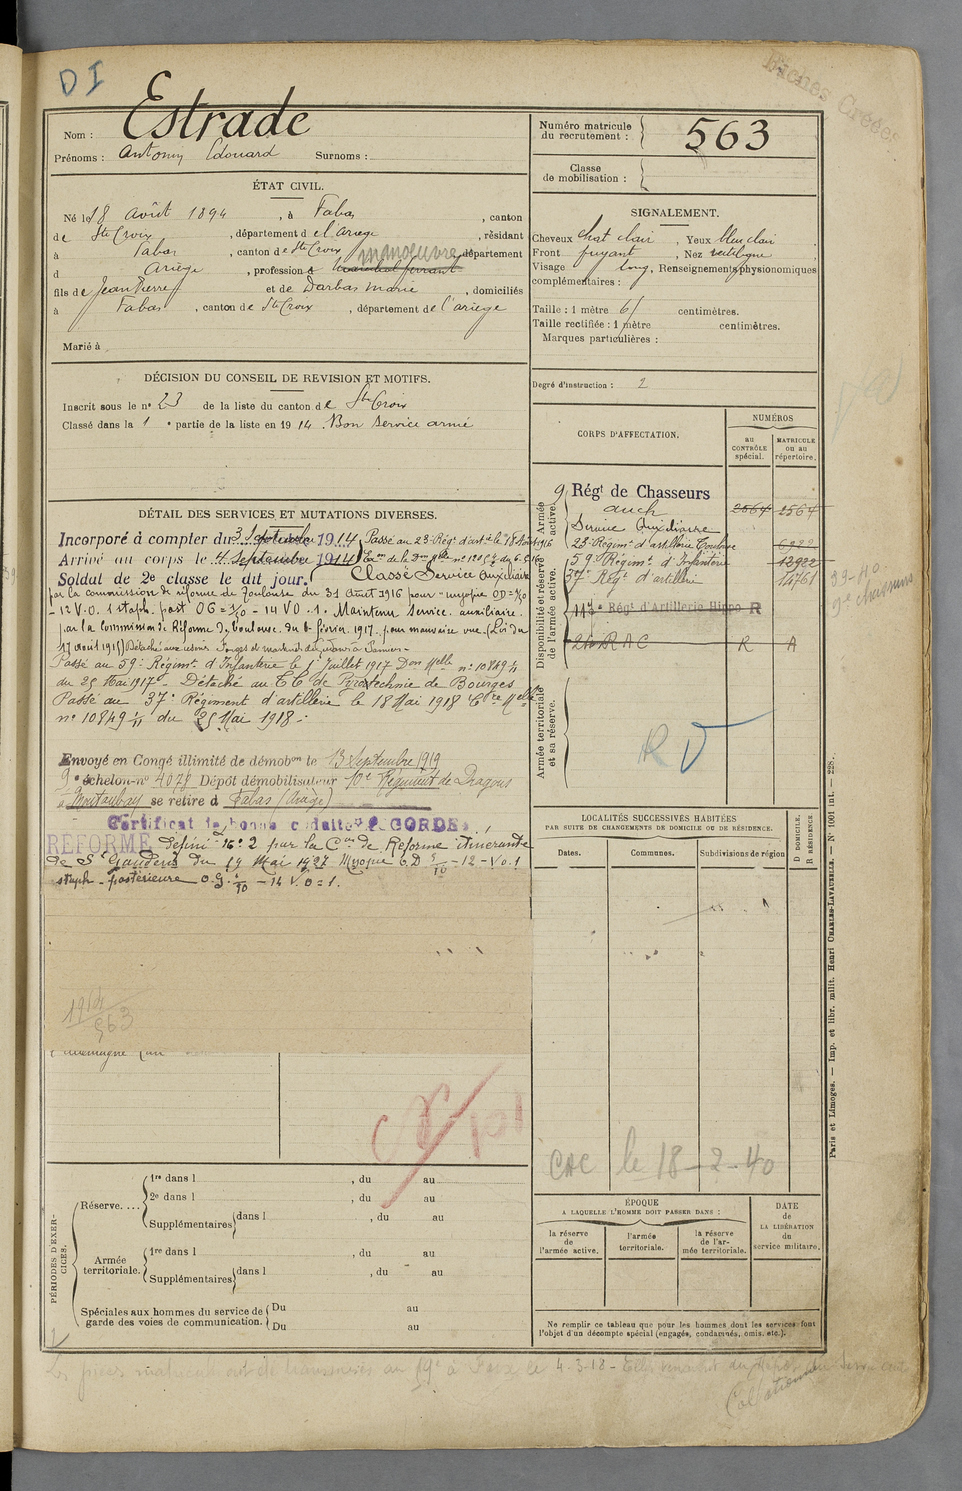 DI
Fiches Créées
Nom : Estrade
Prénoms : Antonin Edouard Surnoms :
Numéro matricule du recrutement : 563
Classe de mobilisation :
ÉTAT CIVIL.
Né le 18 août 1894, à Fabas, canton
de Ste Croix, département de l'Ariège, résidant
à Fabas, canton de Ste Croix, département
d Ariège, profession d maréchal ferrant manoeuvre
fils de Jean Pierre et de Darbas Marie, domiciliés
à Fabas, canton de Ste Croix, département de l'Ariège
Marié à
SIGNALEMENT.
Cheveux chat clair, Yeux bleu clair
Front fuyant, Nez rectiligne
Visage long, Renseignements physionomiques
complémentaires :
Taille : 1 mètre 61 centimètres.
Taille rectifiée : 1 mètre centimètres.
Marques particulières :
Degré d'instruction : 2
DÉCISION DU CONSEIL DE REVISION ET MOTIFS.
Inscrit sous le no 23 de la liste du canton de Ste Croix
Classé dans la 1e partie de la liste en 1914. Bon service armé
CORPS D'AFFECTATION.
NUMÉROS
au CONTRÔLE spécial.
MATRICULE ou au répertoire.
Armée active.
Disponibilité et réserve de l'armée active.
Armée territoriale et sa réserve.
9e Régt de Chasseurs
auch 2564 2564
Service Auxiliaire
23e Régimt d'artillerie Toulouse
59e Régimt d'Infanterie 12922
37e Régt d'artillerie 14761
117e Régt d'Artillerie Hippo R
R A C R A
R V
39-40
DÉTAIL DES SERVICES ET MUTATIONS DIVERSES.
Incorporé à compter du 3 Septembre 1914. Passé au 23e Régt d'artie le 18 Août 1916
Arrivé au corps le 4 Septembre 1914
Soldat de 2e classe le dit jour. Classé Service Auxiliaire
par la commission de réforme de Toulouse du 31 Août 1916 pour "myopie OD = 3/10
– 12 V.O. 1 staph. post OG = 3/10 – 14 VO. 1. Maintenu service auxiliaire
par la Commission de Réforme de Toulouse du 6 février 1917 pour mauvaise vue. (Loi du
17 août 1915) Détaché aux usines Forges et
Passé au 59e Régimt d'Infanterie le 1er Juillet 1917 Don Melle no 10849 1/11
du 25 Mai 1917. Détaché au de Pyrotechnie de Bourges
Passé au 37e Régiment d'artillerie le 18 Mai 1918
no 10849 1/11 du 25 Mai 1918.
Envoyé en Congé illimité de démobon le 13 Septembre 1919
9e échelon no 4078 Dépôt démobilisateur 10e Régiment de Dragons
à Montauban se retire à Fabas (Ariège)
Certificat de bonne conduite ACCORDÉ
RÉFORMÉ défini no 2 par la Con de Réforme itinérante
de St Gaudens du 17 Mai 1927 Myopie O.D 3/10 – 12 – V.O.1
staph – postérieure O.G. 1/10 – 14 V.O = 1.
1914
563
Allemagne
LOCALITÉS SUCCESSIVES HABITÉES
PAR SUITE DE CHANGEMENTS DE DOMICILE OU DE RÉSIDENCE.
Dates.
Communes.
Subdivisions de région
D DOMICILE.
R RÉSIDENCE.
CAC le 18-2-40
PÉRIODES D'EXERCICES.
Réserve. ....
1re dans l , du au
2e dans l , du au
Supplémentaires dans l , du au
Armée territoriale.
1re dans l , du au
Supplémentaires dans l , du au
Spéciales aux hommes du service de garde des voies de communication.
Du au
Du au
ÉPOQUE
A LAQUELLE L'HOMME DOIT PASSER DANS :
la réserve de l'armée active.
l'armée territoriale.
la réserve de l'armée territoriale.
DATE
de
LA LIBÉRATION
du
service militaire.
Ne remplir ce tableau que pour les hommes dont les services font
l'objet d'un décompte spécial (engagés, condamnés, omis, etc.).
Paris et Limoges. — Imp. et libr. milit. Henri CHARLES-LAVAUZELLE. — No 1001 int. — 228.
Les pièces matricules ont été transmises au à Foix le 4-3-18